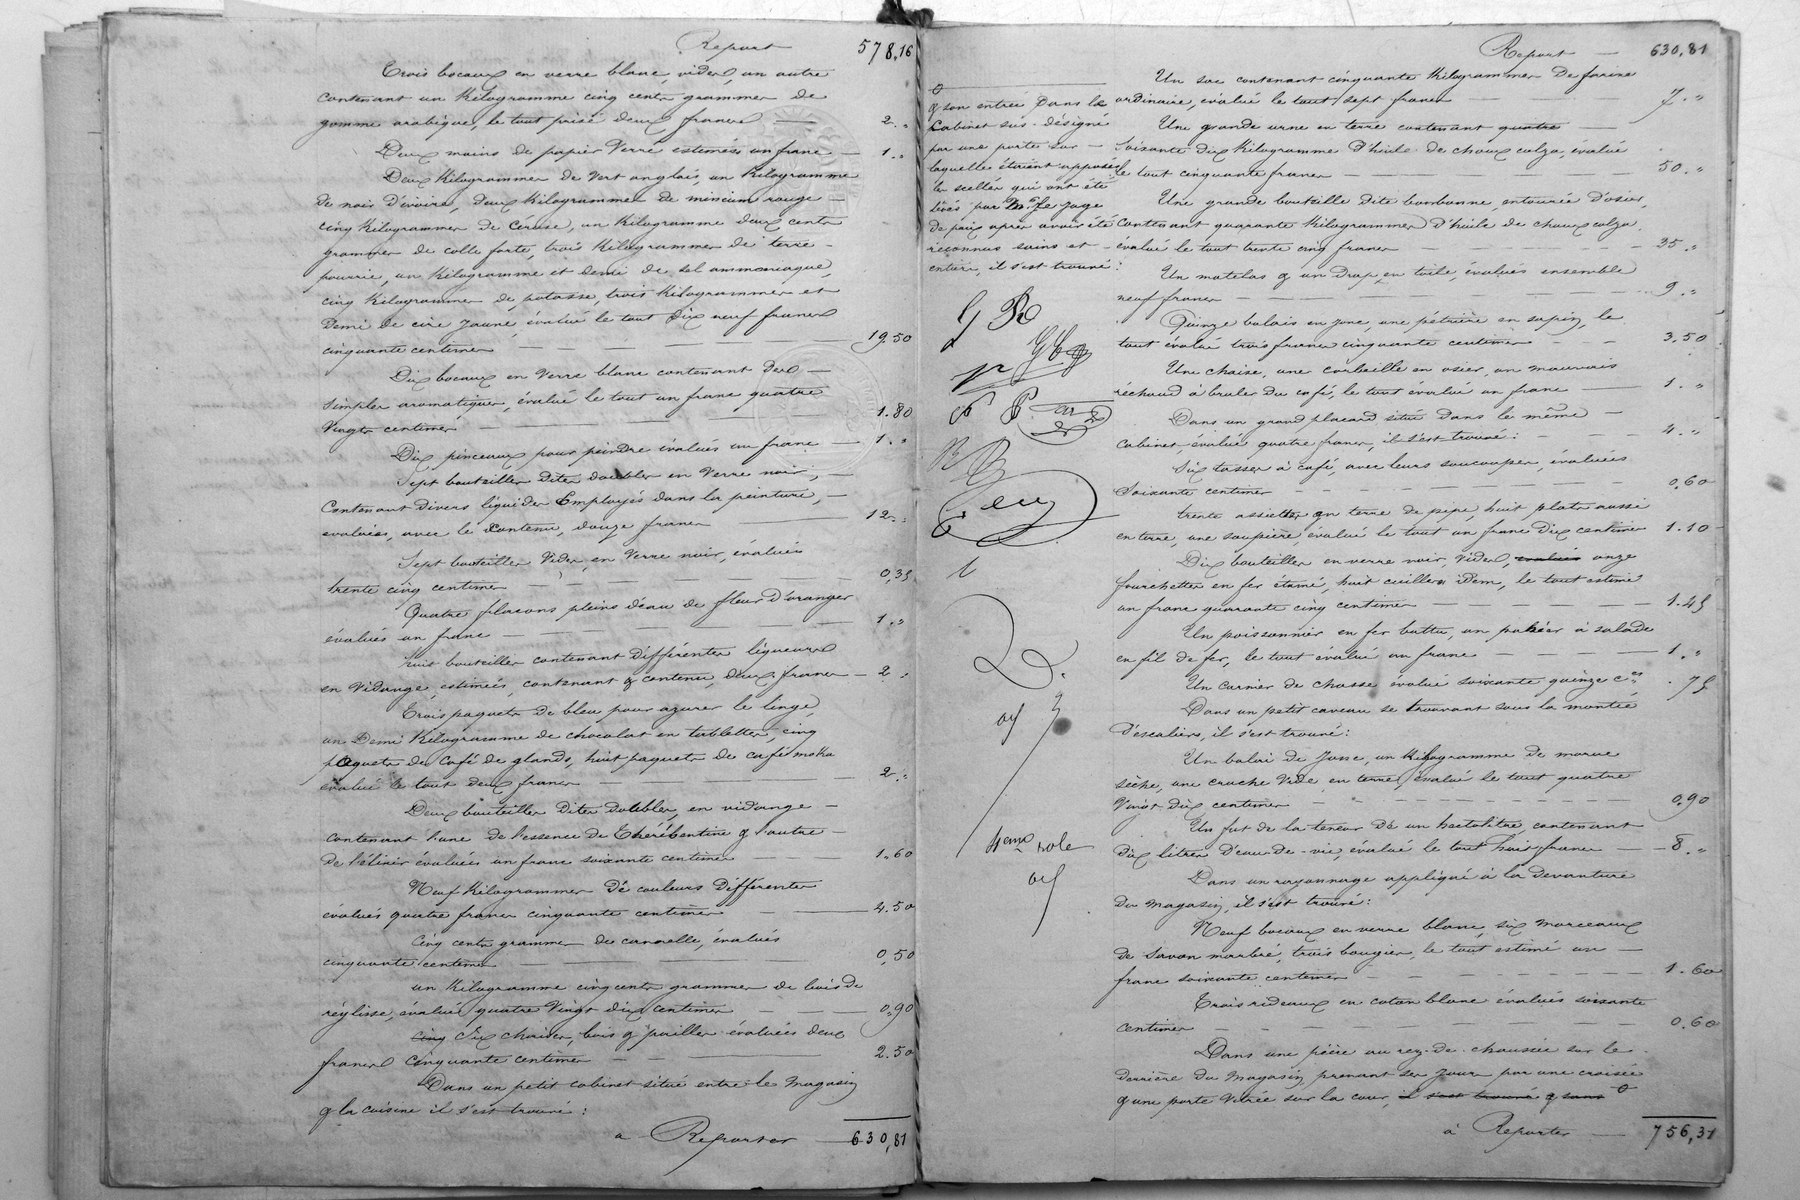 Report 578,16
Trois bocaux en verre blanc, vides, un autre
contenant un Kilogramme cinq cents grammes de
gomme arabique, le tout prisé deux francs — 2 . "
Deux mains de papier Verré estimées un franc — 1 . "
Deux Kilogrammes de vert anglais, un Kilogramme
de noir d'ivoire, deux Kilogrammes de minium rouge —
cinq Kilogrammes de Céruse, un Kilogramme deux cents
grammes de colle forte, trois Kilogrammes de terre —
pourrie, un Kilogramme et demi de sel ammoniaque,
cinq Kilogrammes de potasse, trois Kilogrammes et
demi de cire jaune, évalué le tout dix neuf francs
cinquante centimes — 19.50
Dix bocaux en Verre blanc contenant des —
simples aromatiques, évalué le tout un franc quatre
Vingts centimes — 1.80
Dix pinceaux pour peindre évalués un franc — 1 . "
Sept bouteilles dites doubles en Verre noir, —
Contenant divers liquides Employés dans la peinture, —
évaluées, avec le contenu, douze francs — 12 . "
Sept bouteilles Vides, en Verre noir, évalués
trente cinq centimes — 0,35
Quatre flacons pleins d'eau de fleur d'oranger
évalués un franc — 1 . "
huit bouteilles contenant différentes liqueurs
en Vidange, estimées, contenant & contenu, deux francs — 2 . "
Trois paquets de bleu pour azurer le linge,
un Demi Kilogramme de chocolat en tablettes, cinq
paquets de Café de glands, huit paquets de café moka
évalué le tout deux francs — 2 . "
Deux bouteilles Dites Doubles, en vidange —
contenant l'une de l'essence de Thérébentine & l'autre —
de l'élixir évaluées un franc soixante centimes — 1.60
Neuf Kilogrammes de couleurs différentes
évalués quatre francs cinquante centimes — 4.50
Cinq cents grammes de cannelle, évalués
cinquante centimes — 0,50
un Kilogramme cinq cents grammes de bois de
réglisse, évalué quatre Vingt dix centimes — 0,90
cinq Six chaises, bois & pailles évaluées deux
francs cinquante centimes — 2.50
Dans un petit cabinet situé entre le Magasin
& la cuisine il s'est trouvé :
a Reporter — 630,81
& son entrée Dans le
Cabinet sus-désigné
par une porte sur —
laquelle étaient apposés
les scellés qui ont été
levés par M. le Juge
de paix après avoir été
reconnus sains et
entiers, il s'est trouvé :
4eme role
Report — 630,81
Un sac contenant cinquante Kilogrammes de farine
ordinaire, évalué le tout sept francs — 7 . "
Une grande urne en terre contenant quatre —
soixante dix Kilogramme d'huile de choux colza, évalué
le tout cinquante francs — 50 . "
Une grande bouteille dite bonbonne, entourée d'osier,
Contenant quarante Kilogrammes d'huile de choux colza,
évalué le tout trente cinq francs — 35 . "
Un matelas & un drap en toile, évalués ensemble
neuf francs — 9 . "
Quinze balais en jonc, une pétrière en sapin, le
tout évalué trois francs cinquante centimes — 3.50
Une chaise, une corbeille en osier, un mauvais
réchaud à bruler du café, le tout évalué un franc — 1 . "
Dans un grand placard situé dans le même —
cabinet, évalué quatre francs, il s'est trouvé : — 4 . "
Six tasses à café, avec leurs soucoupes, évaluées
Soixante centimes — 0,60
trente assiettes en terre de pipe, huit plats aussi
en terre, une soupière, évalué le tout un franc dix centimes 1.10
Dix bouteilles en verre noir, vides, évalués onze
fourchettes en fer étamé, huit cuillers idem, le tout estimé
un franc quarante cinq centimes — 1.45
Un poissonnier en fer battu, un panier à salade
en fil de fer, le tout évalué un franc — 1 . "
Un carnier de chasse évalué soixante quinze ces . 75
Dans un petit caveau se trouvant sous la montée
d'escaliers, il s'est trouvé :
Un balai de Jonc, un Kilogramme de morue
sèche, une cruche Vide en terre, évalué le tout quatre
Vingt dix centimes — 0,90
Un fut de la teneur de un hectolitre contenant
dix litres d'eau-de-vie, évalué le tout huit francs — 8 . "
Dans un rayonnage appliqué à la devanture
du magasin, il s'est trouvé :
Neuf bocaux en verre blanc, six morceaux
de savon marbré, trois bougies, le tout estimé un —
franc soixante centimes — 1.60
Trois rideaux en coton blanc évalués soixante
centimes — 0.60
Dans une pièce au rez-de-chaussée sur le
derrière du Magasin, prenant ses jour par une croisée
& une porte Vitrée sur la cour, il s'est trouvé & sans
à Reporter — 756,31